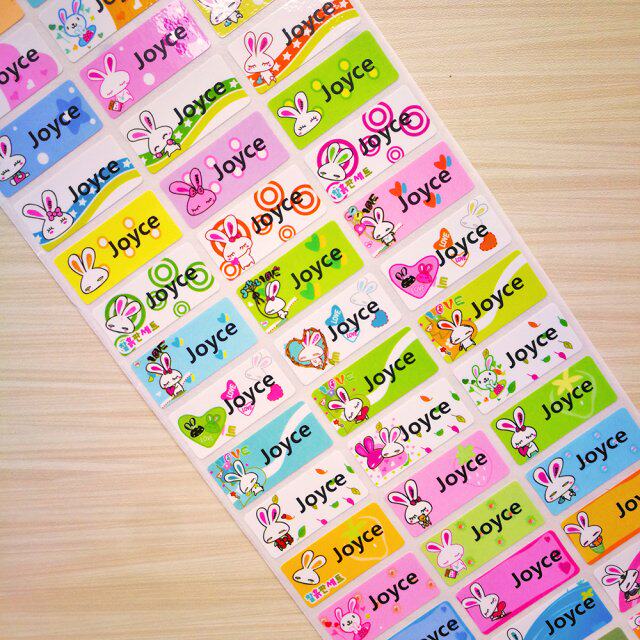 Joyce
Joyce
Joyce
Joyce
Joyce
Joyce
Joyce
Joyce
Joyce
Joyce
Joyce
Joyce
Joyce
Joyce
Joyce
Joyce
Joyce
Joyce
LOVE
Joyce
Joyce
Joyce
Joyce
Joyce
LOVE
Joyce
Joyce
Joyce
LOVE
Joyce
Joyce
Joyce
Joyce
Joyce
Joyce
Joyce
Joyce
Joyce
Joyce
Joyce
Joyce